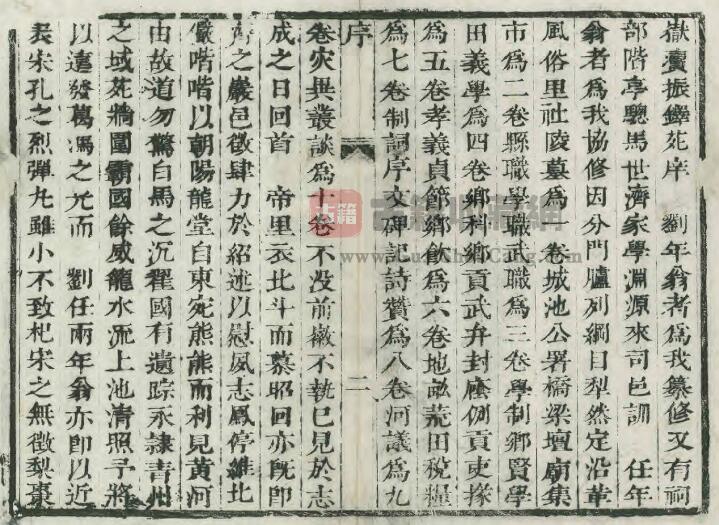 嶽賣振鐸茫岸　劉年翁者爲我纂修又有祠
部階亭驄馬世濟家學淵源來司邑訓　任年
翁者爲我協修因分門臚列綱目犁然定沿革
風俗里社陵墓爲一卷城池公署橋梁壇廟集
市爲二卷縣職學職武職爲三卷學制鄉賢學
田義學爲四卷鄉科鄉貢武弁封廕例貢吏掾
爲五卷孝義貞節鄉飲爲六卷地畝荒田稅糧
爲七卷制詞序文碑記詩贊爲八卷河議爲九
序
二
卷災異叢談爲十卷不没前徽不執已見於志
成之日回首　帝里衣北斗而慕昭回亦旣卽
之巖邑徵肆力於紹述以慰夙志鳳停維北
儼喈喈以朝陽龍堂自東宛熊熊而利見黃河
由故道勿驚白馬之沉瞿國有遺踪永隸靑州
之域茫牆圍霸國餘威龍水流上池清照予將
以遠發萬馮之允而　劉任兩年翁亦卽以近
表朱孔之烈彈丸雖小不致杞宋之無徵梨棗